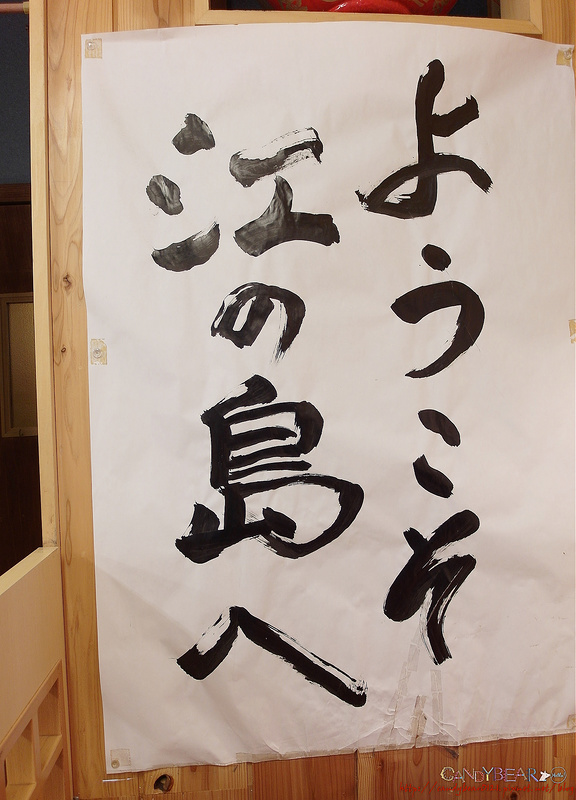 ようこそ
江の島へ
CANDYBEAR